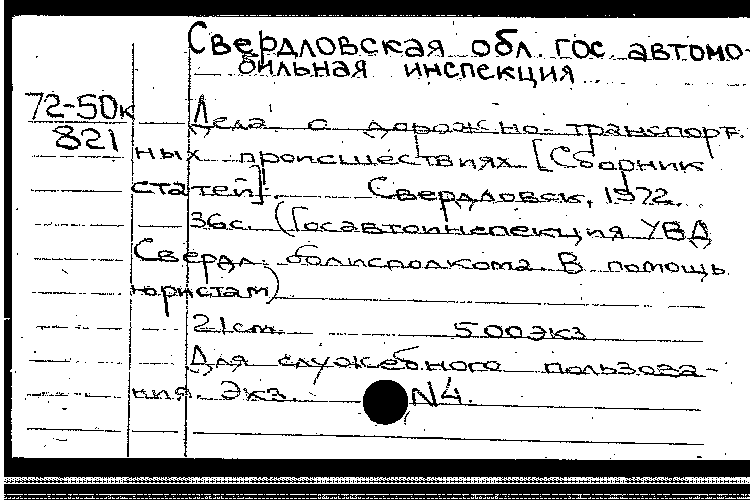 Свердловская обл. гос автомо-
бильная инспекция
72-50к
821
Дела о дорожно-транспорт.
ных происшествиях [Сборник
статей]. Свердловск, 1972.
36с. (Госавтоинспекция УВД
Свердл. облисполкома. В помощь
юристам)
21см. 500экз
Для служебного пользова-
ния. Экз. N4.